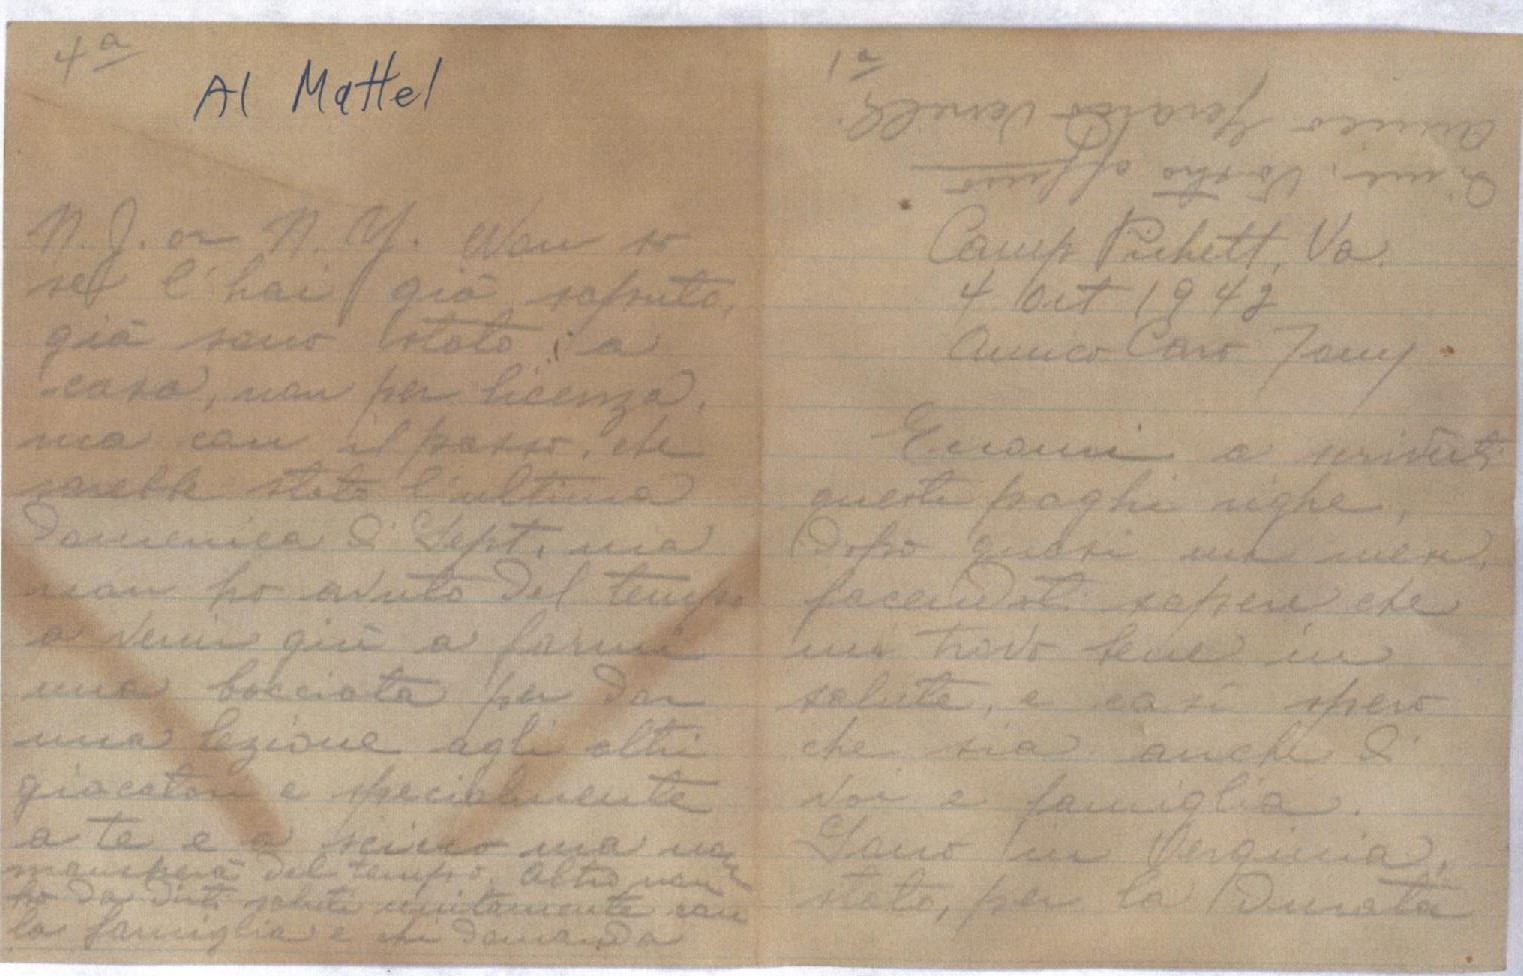 4a
Al Mattel
N. J. or N. Y. Non so
se l'hai già saputo,
già sono stato, a
casa, non per licenza,
ma con il passo, che
sarebbe stato l'ultima
Domenica di Sept. ma
non ho avuto del tempo
a venir giù a farmi
una bocciata per dar
una lezione agli altri
giocatori e specialmente
a te e a ma non
mancherà del tempo. Altro non
ho da dirti saluti unitamente con
la famiglia e chi domanda
1a
di me, Vostro aff.mo
amico Gerardo
Camp Pickett, Va.
4 Oct 1942
Amico Caro Tony
Eccomi a scriverti
questi poghi righe,
dopo quasi un mese,
facendoti sapere che
mi trovo bene in
salute, e così spero
che sia anche di
voi e famiglia.
Sono in Verginia,
stato, per la Durata